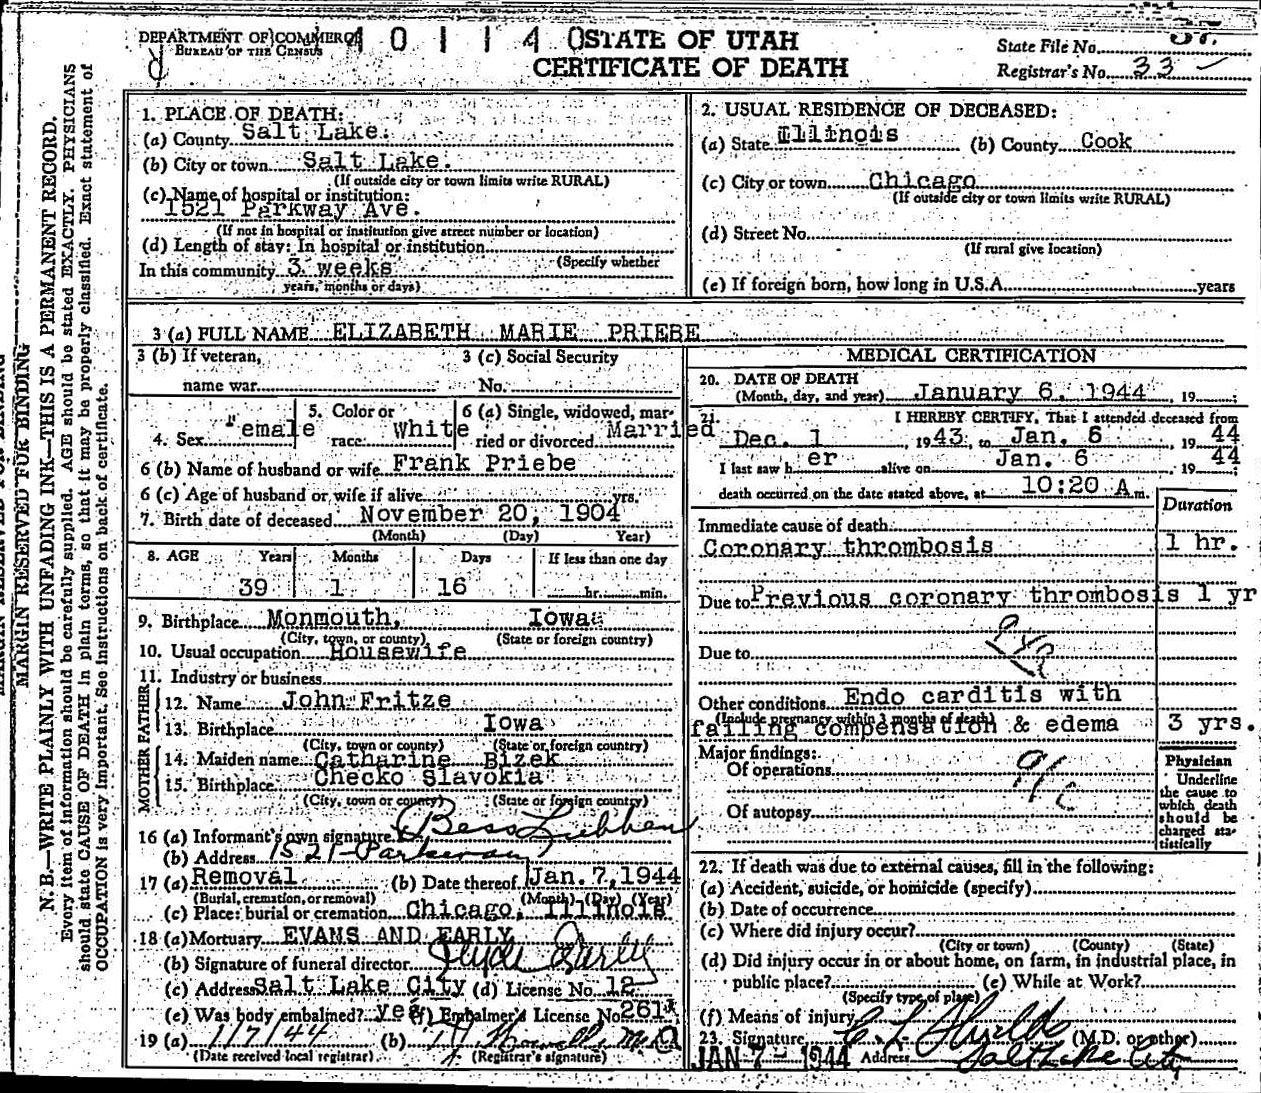 DEPARTMENT OF COMMERCE
BUREAU OF THE CENSUS
4 0 1 1 4 0
STATE OF UTAH
CERTIFICATE OF DEATH
State File No.
Registrar's No. 33
MARGIN RESERVED FOR BINDING
N. B.—WRITE PLAINLY WITH UNFADING INK—THIS IS A PERMANENT RECORD.
Every item of information should be carefully supplied. AGE should be stated EXACTLY. PHYSICIANS
should state CAUSE OF DEATH in plain terms, so that it may be properly classified. Exact statement of
OCCUPATION is very important. See instructions on back of certificate.
1. PLACE OF DEATH:
(a) County Salt Lake.
(b) City or town Salt Lake.
(If outside city or town limits write RURAL)
(c) Name of hospital or institution:
1521 Parkway Ave.
(If not in hospital or institution give street number or location)
(d) Length of stay: In hospital or institution
(Specify whether
In this community 3 weeks
years, months or days)
2. USUAL RESIDENCE OF DECEASED:
(a) State Illinois (b) County Cook
(c) City or town Chicago
(If outside city or town limits write RURAL)
(d) Street No.
(If rural give location)
(e) If foreign born, how long in U.S.A. years
3 (a) FULL NAME ELIZABETH MARIE PRIEBE
3 (b) If veteran, 3 (c) Social Security
name war No.
4. Sex Female 5. Color or race White 6 (a) Single, widowed, married or divorced Married
6 (b) Name of husband or wife Frank Priebe
6 (c) Age of husband or wife if alive yrs.
7. Birth date of deceased November 20, 1904
(Month) (Day) Year)
8. AGE Years Months Days If less than one day
39 1 16 hr. min.
9. Birthplace Monmouth, Iowa
(City, town, or county) (State or foreign country)
10. Usual occupation Housewife
11. Industry or business
FATHER
12. Name John Fritze
13. Birthplace Iowa
(City, town or county) (State or foreign country)
MOTHER
14. Maiden name Catharine Bizek
15. Birthplace Checko Slavokia
(City, town or county) (State or foreign country)
16 (a) Informant's own signature Bess Lubben
(b) Address 1521-Parkway
17 (a) Removal (b) Date thereof Jan. 7, 1944
(Burial, cremation, or removal) (Month) (Day) (Year)
(c) Place: burial or cremation Chicago, Illinois
18 (a) Mortuary EVANS AND EARLY
(b) Signature of funeral director Clyde Early
(c) Address Salt Lake City (d) License No. 12
(e) Was body embalmed? yes (f) Embalmer's License No. 261
19 (a) 1/7/44 (b) M.D.
(Date received local registrar) (Registrar's signature)
MEDICAL CERTIFICATION
20. DATE OF DEATH
(Month, day, and year) January 6, 1944, 19 ;
21. I HEREBY CERTIFY, That I attended deceased from
Dec. 1, 1943, to Jan. 6, 1944
I last saw her alive on Jan. 6, 1944;
death occurred on the date stated above, at 10:20 A m.
Duration
Immediate cause of death
Coronary thrombosis 1 hr.
Due to Previous coronary thrombosis 1 yr
Due to
Other conditions Endo carditis with
(Include pregnancy within 3 months of death)
failing compensation & edema 3 yrs.
Major findings:
Of operations
Of autopsy
Physician
Underline
the cause to
which death
should be
charged sta-
tistically
22. If death was due to external causes, fill in the following:
(a) Accident, suicide, or homicide (specify)
(b) Date of occurrence
(c) Where did injury occur?
(City or town) (County) (State)
(d) Did injury occur in or about home, on farm, in industrial place, in
public place? (e) While at Work?
(Specify type of place)
(f) Means of injury
23. Signature C L Shields (M.D. or other)
JAN 7 - 1944 Address Salt Lake City